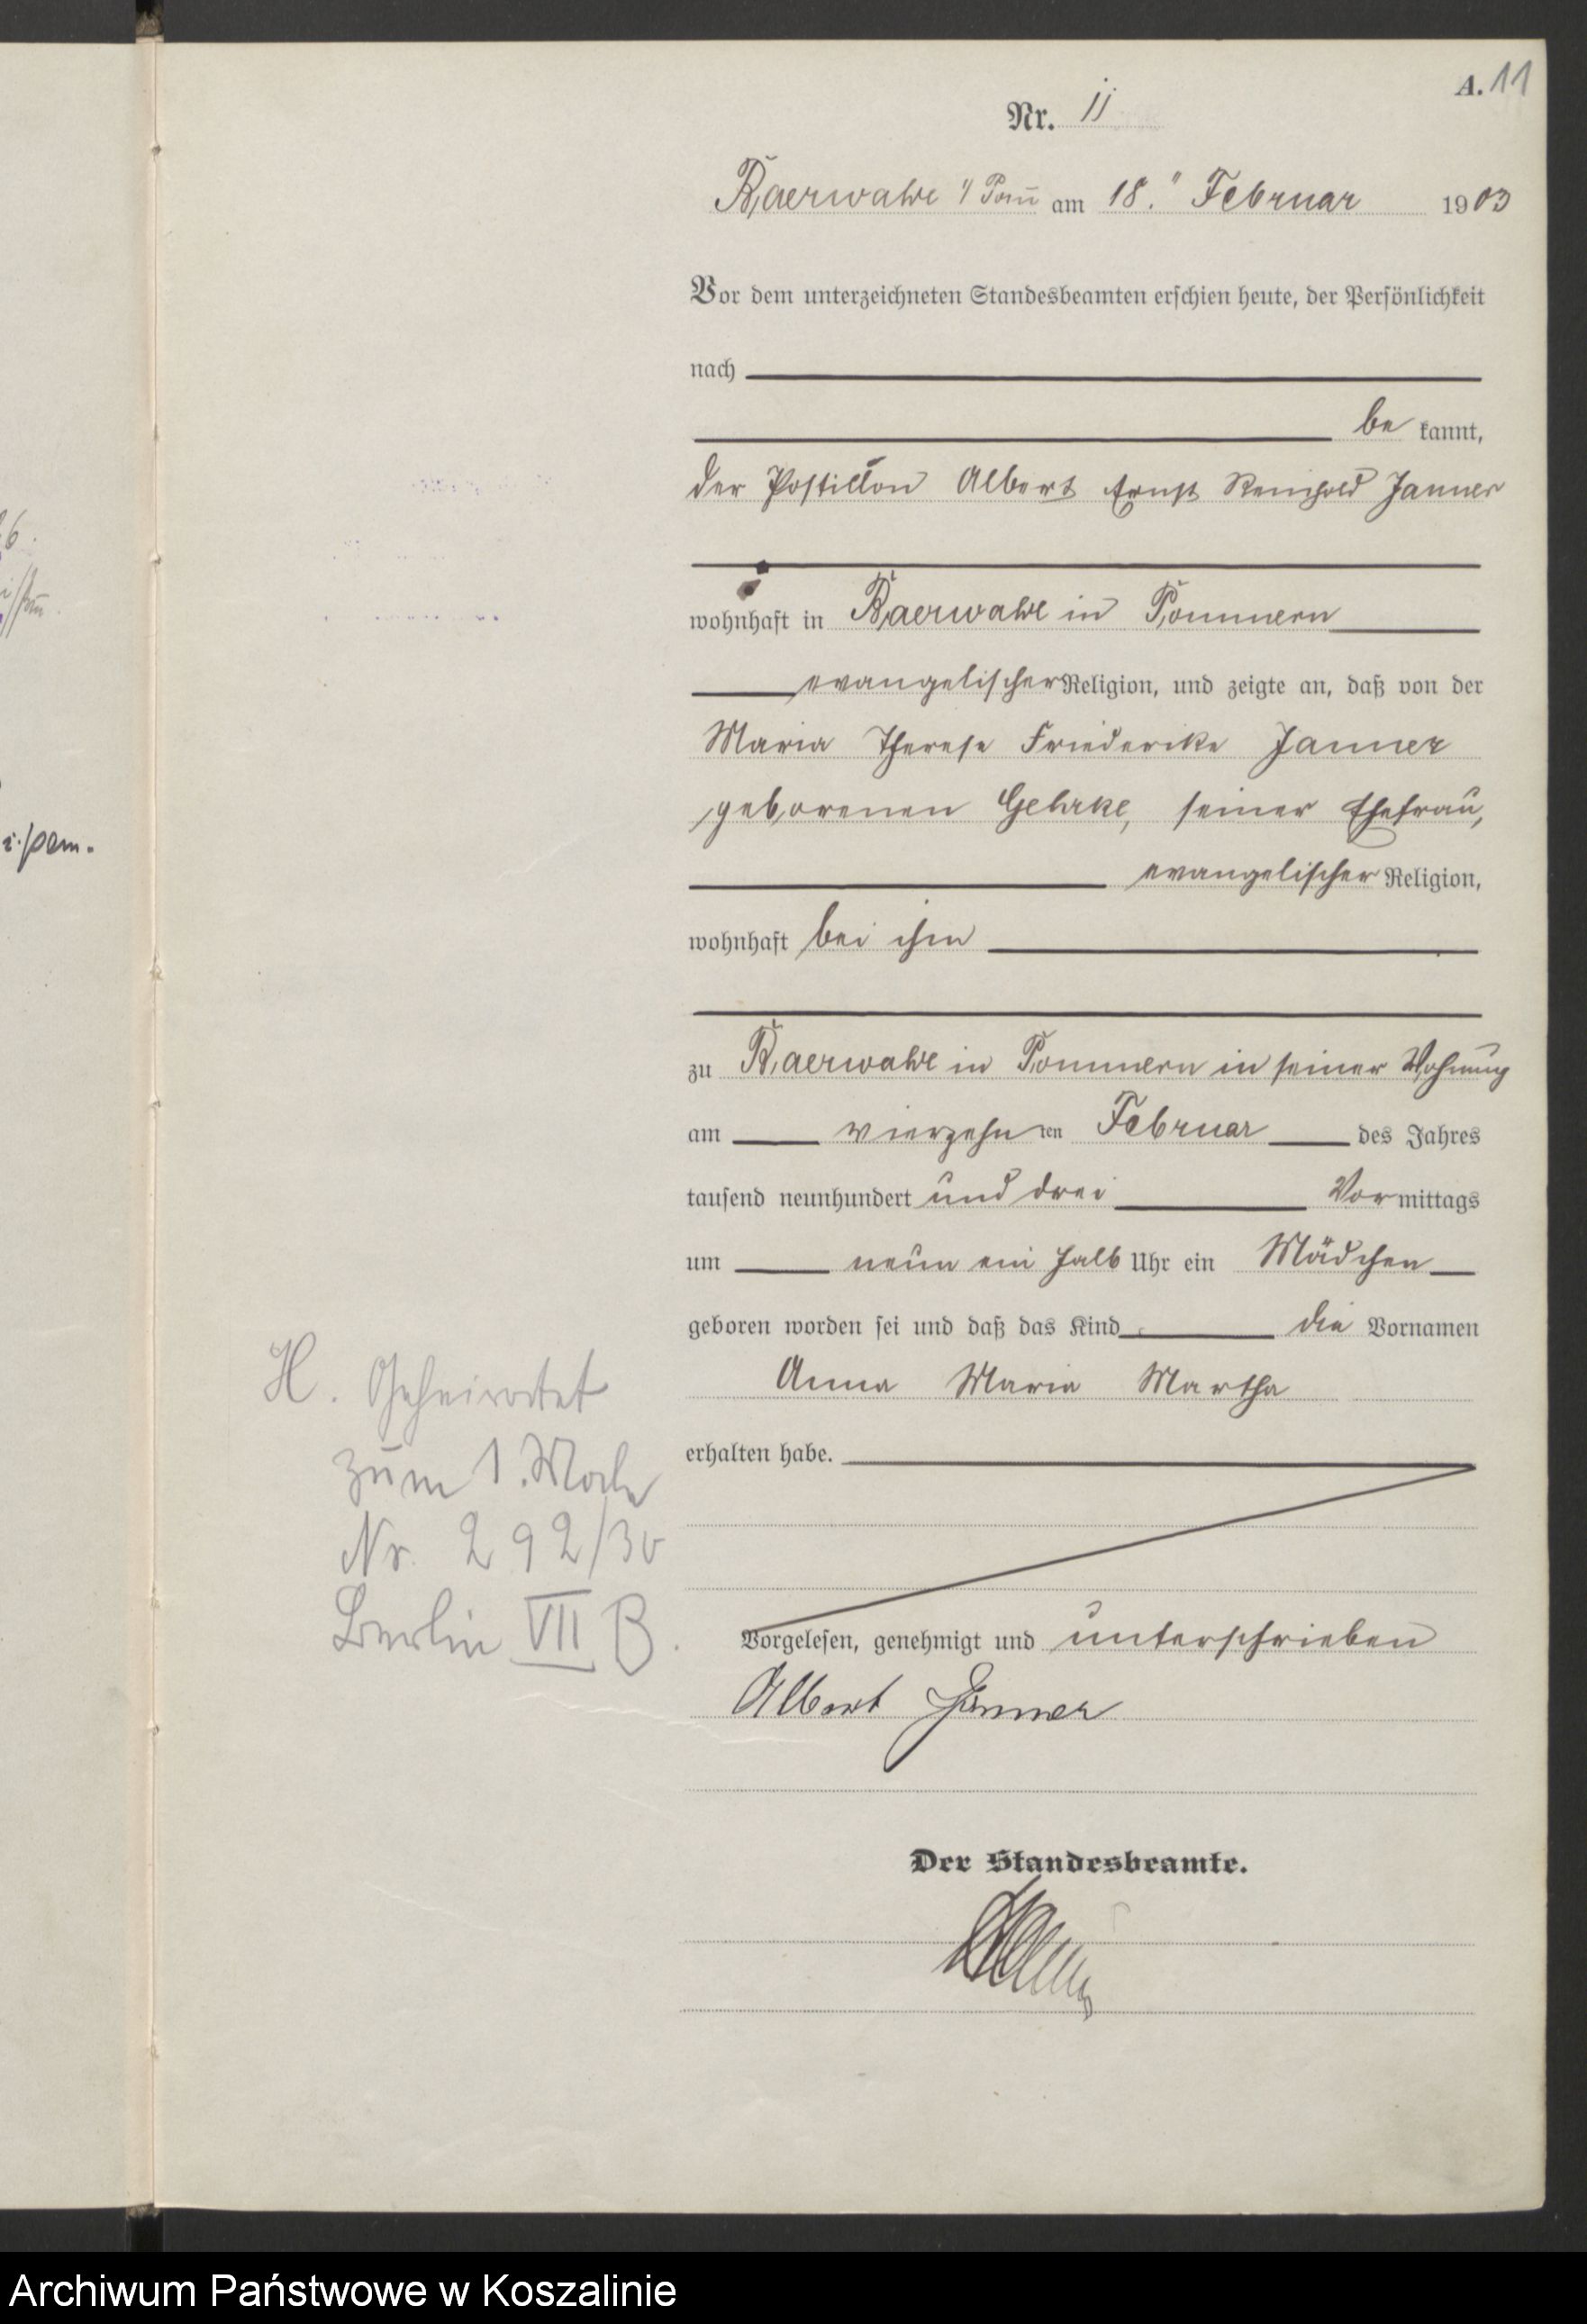 A. 11
Nr. 11
Baerwalde i/ Pom am 18. Februar 1903
Vor dem unterzeichneten Standesbeamten erschien heute, der Persönlichkeit
nach
be kannt,
der Postillon Albert Ernst Reinhold Janner
wohnhaft in Baerwalde in Pommern
evangelischer Religion, und zeigte an, daß von der
Maria Therese Friederike Janner
geborenen Gehrke, seiner Ehefrau,
evangelischer Religion,
wohnhaft bei ihm
zu Baerwalde in Pommern in seiner Wohnung
am vierzehn ten Februar des Jahres
tausend neunhundert und drei Vor mittags
um neun ein halb Uhr ein Mädchen
geboren worden sei und daß das Kind die Vornamen
Anna Maria Martha
erhalten habe.
H. Geheiratet
zum 1. Male
Nr. 292/30
Berlin VII B.
Vorgelesen, genehmigt und unterschrieben
Albert Janner
Der Standesbeamte.
i./Pom.
Archiwum Państwowe w Koszalinie